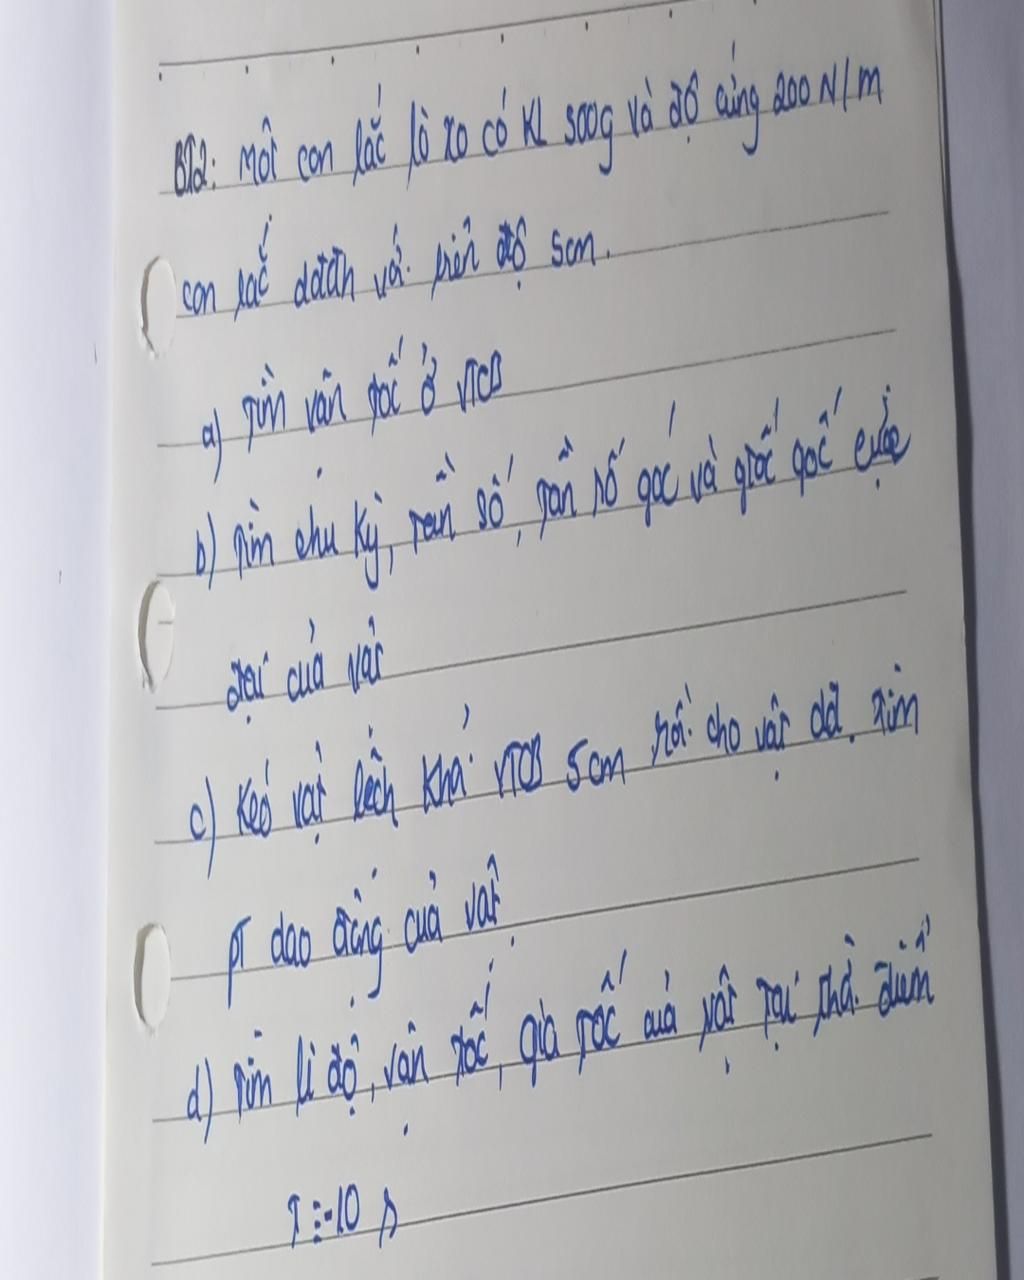 BT2: Một con lắc lò xo có KL 500g và độ cứng 200 N/m
con lắc dđđh với biên độ 5cm.
a) Tìm vận tốc ở VTCB
b) Tìm chu kỳ, tần số, tần số góc và gia tốc cực
đại của vật
c) Kéo vật lệch khỏi VTCB 5cm rồi cho vật dđ. Tìm
PT dao động của vật
d) Tìm li độ, vận tốc, gia tốc của vật tại thời điểm
10 s